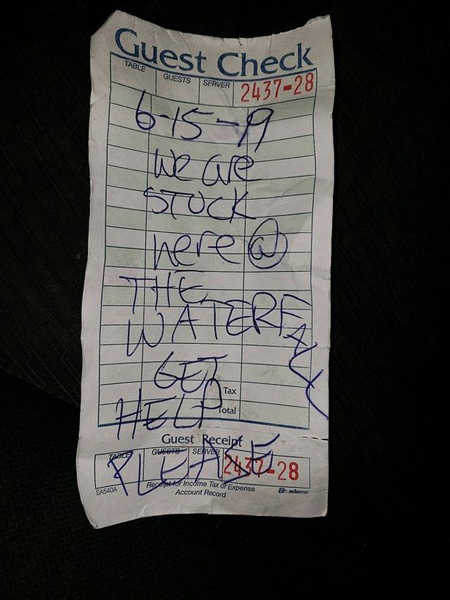 Guest Check
TABLE GUESTS SERVER
2437-28
6-15-19
We are
STUCK
Here @
THE
WATERFALL
GET
Tax
HELP
Total
Guest Receipt
TABLE GUESTS SERVER
2437-28
PLEASE
SA540A
Receipt for Income Tax or Expense
Account Record
adams